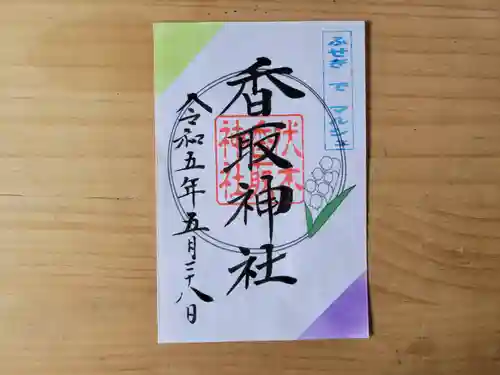 ふせぎ で マルシェ
香取神社
伏木
香取
神社
令和五年五月二十八日